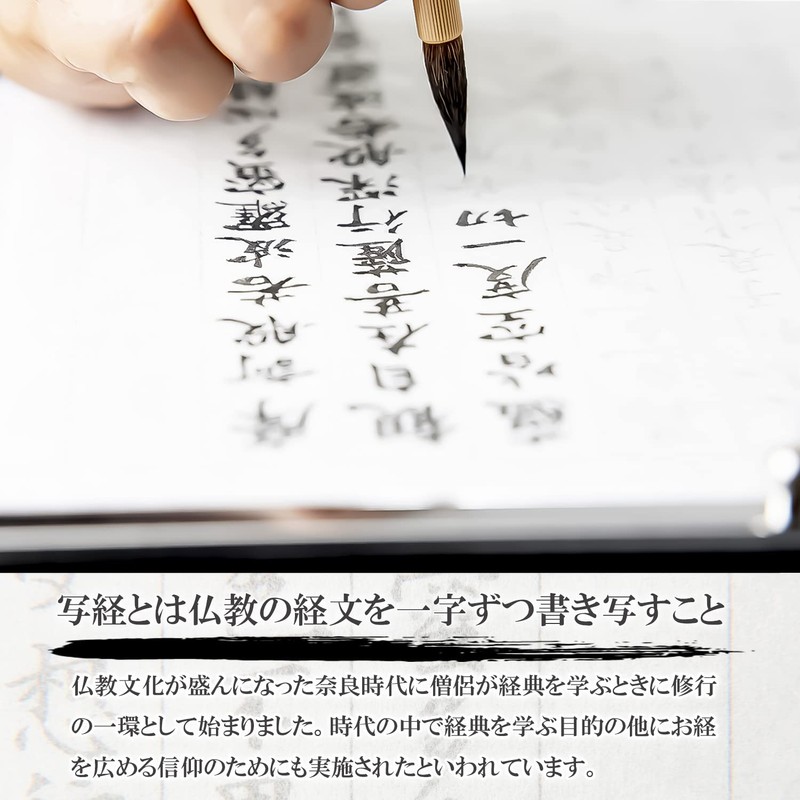 摩訶般若波羅蜜多
観自在菩薩行深般若波
蘊皆空度一切
写経とは仏教の経文を一字ずつ書き写すこと
仏教文化が盛んになった奈良時代に僧侶が経典を学ぶときに修行
の一環として始まりました。時代の中で経典を学ぶ目的の他にお経
を広める信仰のためにも実施されたといわれています。